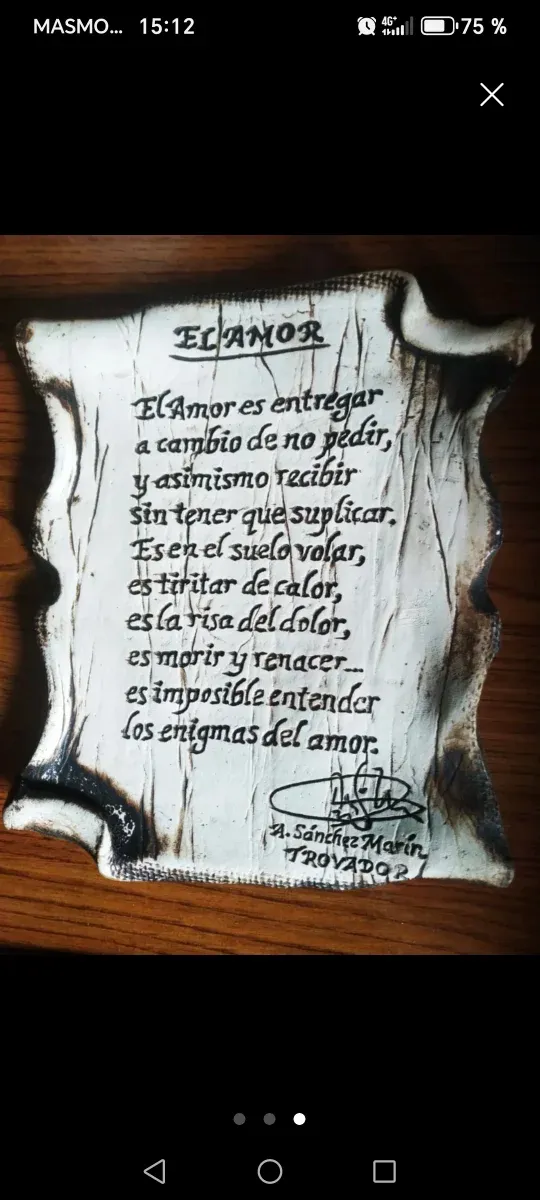 MASMO... 15:12 4G+ 75 %
EL AMOR
El Amor es entregar
a cambio de no pedir,
y asimismo recibir
sin tener que suplicar.
Es en el suelo volar,
es tiritar de calor,
es la risa del dolor,
es morir y renacer...
es imposible entender
los enigmas del amor.
A. Sánchez Marín
TROVADOR